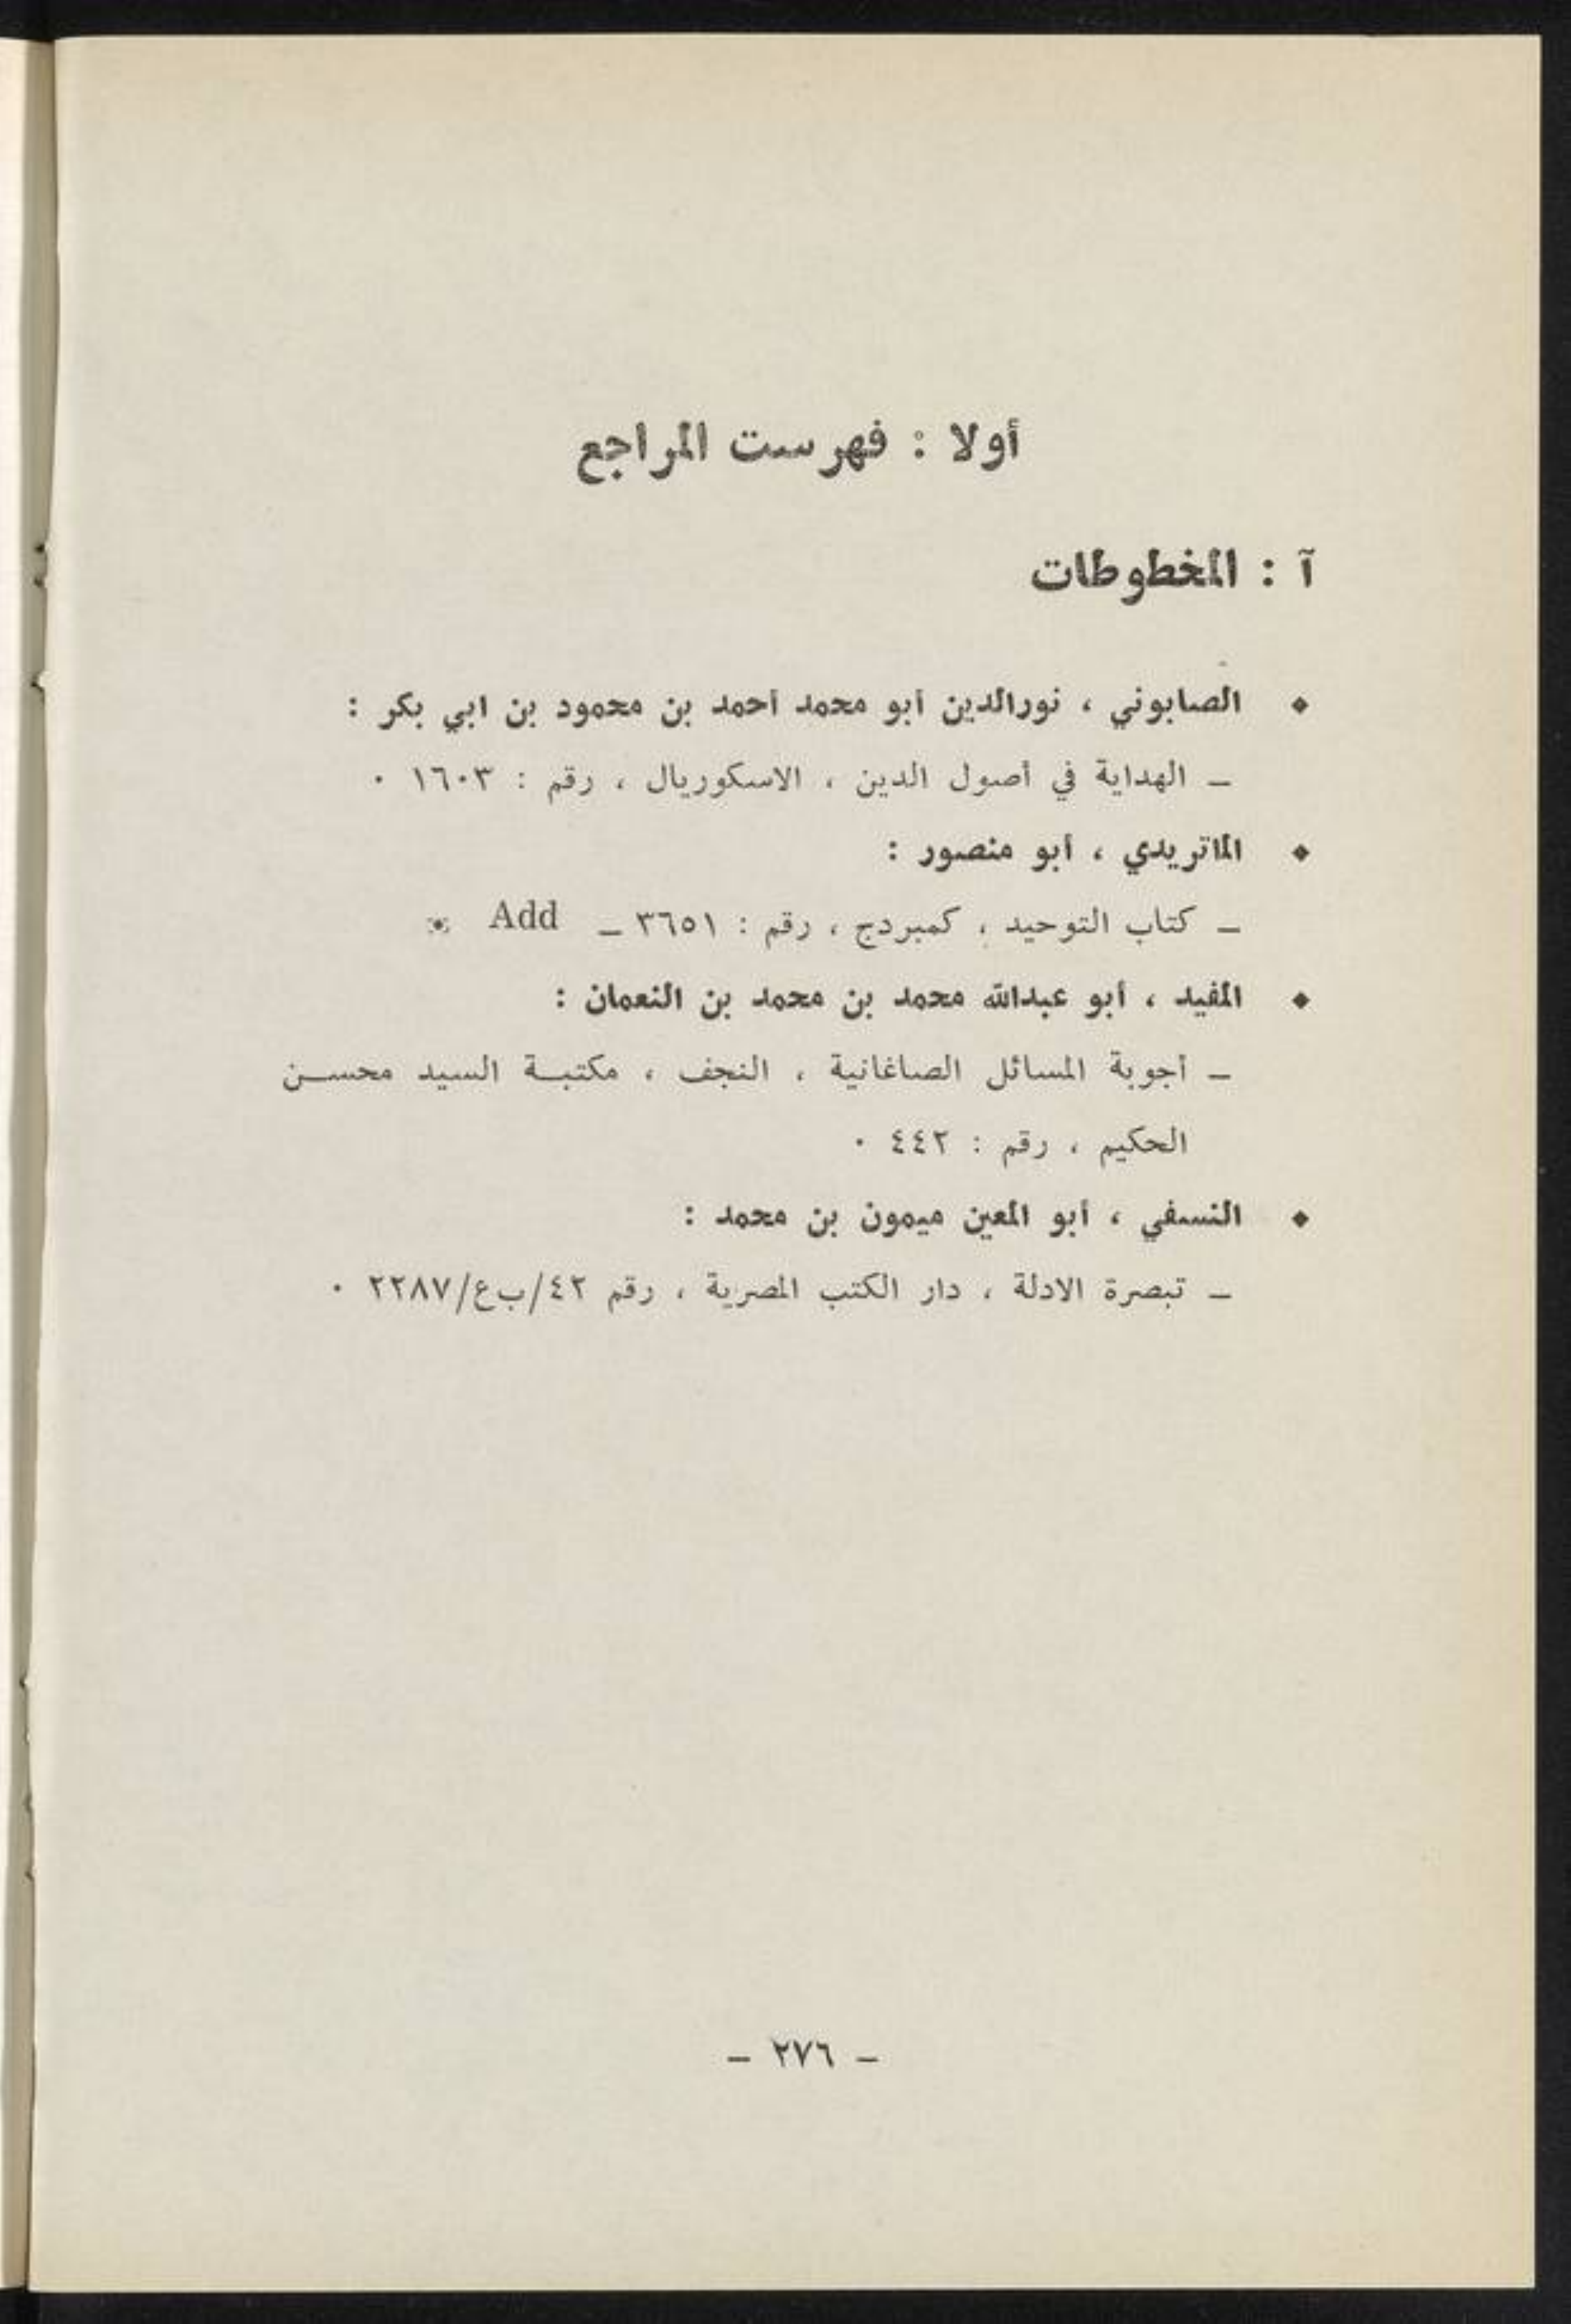 أولا : فهرست المراجع
آ : المخطوطات
◆ الصابوني ، نورالدين أبو محمد أحمد بن محمود بن ابي بكر :
ــ الهداية في أصول الدين ، الاسكوريال ، رقم : ١٦٠٣ ٠
◆ الماتريدي ، أبو منصور :
ــ كتاب التوحيد ، كمبردج ، رقم : ٣٦٥١ ــ Add ※
◆ المفيد ، أبو عبدالله محمد بن محمد بن النعمان :
ــ أجوبة المسائل الصاغانية ، النجف ، مكتبـة السيد محسـن
الحكيم ، رقم : ٤٤٢ ٠
◆ النسفي ، أبو المعين ميمون بن محمد :
ــ تبصرة الادلة ، دار الكتب المصرية ، رقم ٤٢/ب ع/٢٢٨٧ ٠
ــ ٢٧٦ ــ